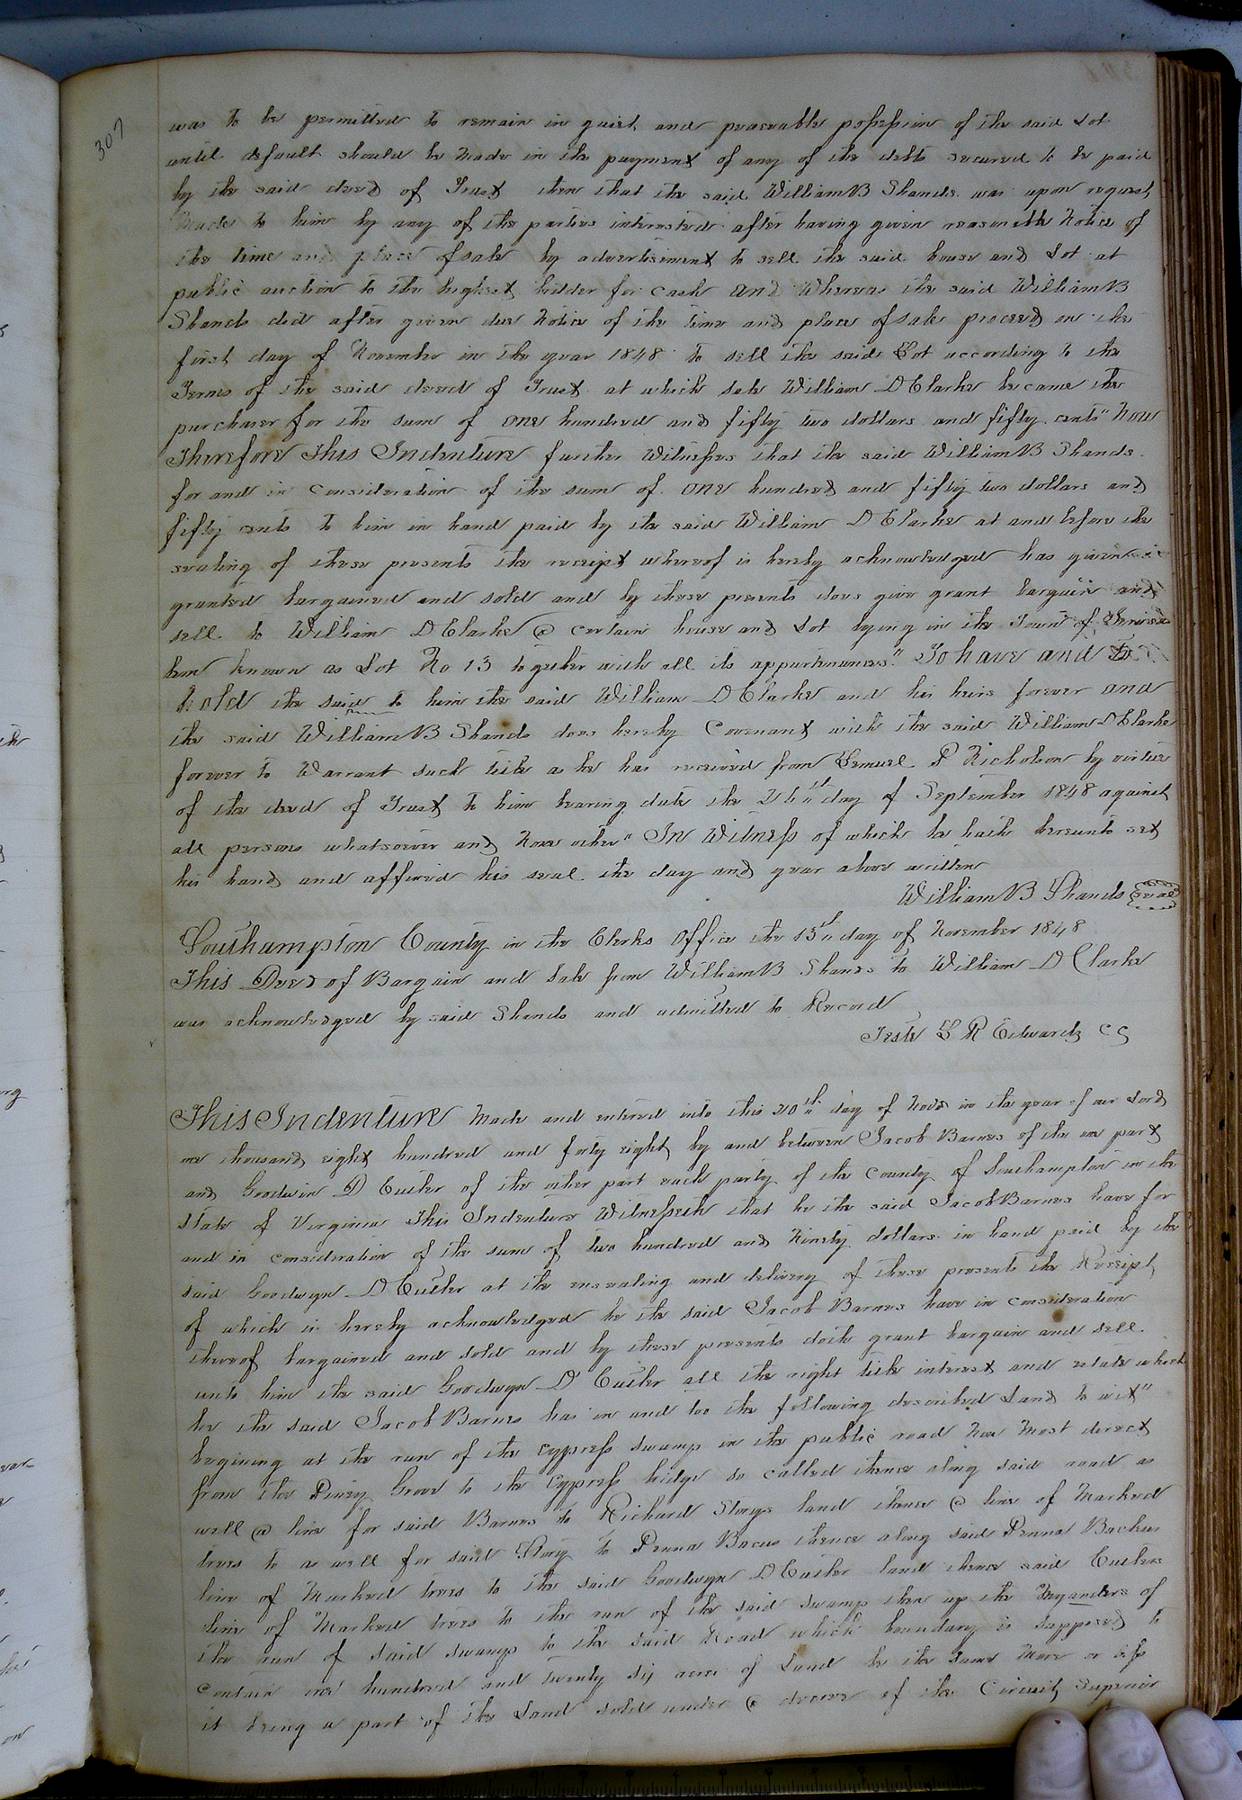 307
was to be permitted to remain in quiet and peaceable possession of the said Lot
until default should be made in the payment of any of the debts secured to be paid
by the said deed of Trust then that the said William B Shands was upon request
Made to him by any of the parties interested after having given reasonable Notice of
the time and place of sale by advertisement to sell the said house and Lot at
public auction to the highest bidder for cash and Whereas the said William B
Shands did after given due Notice of the time and place of sale proceed on the
first day of November in the year 1848 to sell the said Lot according to the
Terms of the said deed of Trust at which sale William D Clarke became the
purchaser for the sum of one hundred and fifty two dollars and fifty cents" Now
Therefore This Indenture further Witnesses that the said William B Shands
for and in consideration of the sum of one hundred and fifty two dollars and
fifty cents to him in hand paid by the said William D Clarke at and before the
sealing of these presents the receipt whereof is hereby acknowledged has given
granted bargained and sold and by these presents does give grant bargain and
sell to William D Clarke @ certain house and Lot lying in the Town of
known as Lot No 13 together with all its appurtenances" To have and to
hold the said to him the said William D Clarke and his heirs forever and
the said William B Shands does hereby Covenant with the said William D Clarke
forever to Warrant such title as he has received from Lemuel P Nicholson by virtue
of the deed of Trust to him bearing date the day of September 1848 against
all persons whatsoever and None other" In Witness of which he hath hereunto set
his hand and affixed his seal the day and year above written
William B Shands Seal
Southampton County in the Clerks Office the 15th day of November 1848
This Deed of Bargain and Sale from William B Shands to William D Clarke
was acknowledged by said Shands and admitted to Record
Teste L R Edwards CC
This Indenture Made and entered into this 20th day of Novr in the year of our Lord
one thousand eight hundred and forty eight by and between Jacob Barnes of the one part
and Goodwin D Cutler of the other part each party of the County of Southampton in the
State of Virginia This Indenture Witnesseth that he the said Jacob Barnes have for
and in consideration of the sum of two hundred and Ninety dollars in hand paid by the
said Goodwyn D Cutler at the ensealing and delivery of these presents the Receipt
of which is hereby acknowledged he the said Jacob Barnes have in consideration
thereof bargained and sold and by these presents doth grant bargain and sell
unto him the said Goodwyn D Cutler all the right title interest and estate which
he the said Jacob Barnes has in and too the following described Land to wit"
begining at the run of the cypress swamp in the public road Now Most direct
from the Piney Grove to the Cypress bridge so called thence along said road as
well @ line for said Barnes to Richard Storys land thence @ line of Marked
trees to as well for said Story to Penna Bacus thence along said Penna Bachus
line of Marked trees to the said Goodwyn D Cutler land thence said Cutlers
line of Marked trees to the run of the said swamp then up the Meyanders of
the run of said swamp to the said Road which boundary is supposed to
contain one hundred and twenty six acres of Land be the same More or less
it being a part of the Land sold under @ decree of the Circuit Superior